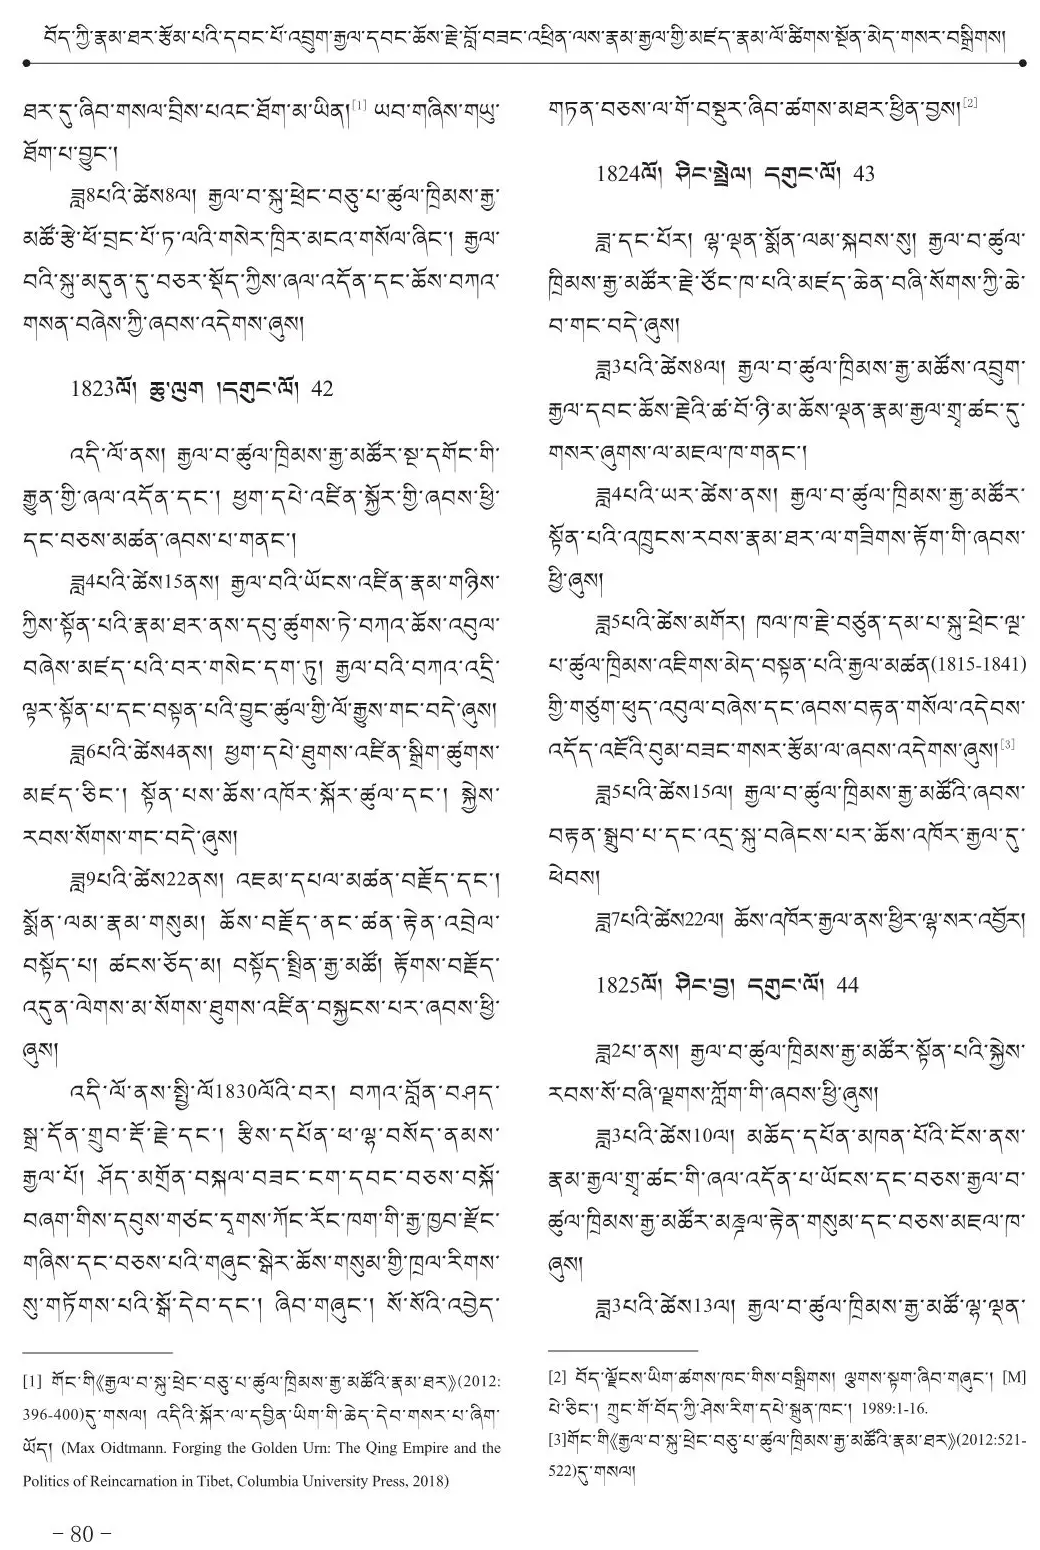 བོད་ཀྱི་རྣམ་ཐར་རྩོམ་པའི་དབང་པོ་འབྲུག་རྒྱལ་དབང་ཆོས་རྗེ་བློ་བཟང་འཕྲིན་ལས་རྣམ་རྒྱལ་གྱི་མཛད་རྣམ་ལོ་ཚིགས་སྔོན་མེད་གསར་བསྒྲིགས།
ཐར་དུ་ཞིབ་གསལ་བྲིས་པའང་ཐོག་མ་ཡིན།[1] ཡབ་གཞིས་གཡུ་
ཐོག་པ་བྱུང་།
ཟླ8པའི་ཚེས8ལ། རྒྱལ་བ་སྐུ་ཕྲེང་བཅུ་པ་ཚུལ་ཁྲིམས་རྒྱ་
མཚོ་རྩེ་ཕོ་བྲང་པོ་ཏ་ལའི་གསེར་ཁྲིར་མངའ་གསོལ་ཞིང་། རྒྱལ་
བའི་སྐུ་མདུན་དུ་བཅར་སྡོད་ཀྱིས་ཞལ་འདོན་དང་ཆོས་བཀའ་
གསན་བཞེས་ཀྱི་ཞབས་འདེགས་ཞུས།
1823ལོ། ཆུ་ལུག །དགུང་ལོ། 42
འདི་ལོ་ནས། རྒྱལ་བ་ཚུལ་ཁྲིམས་རྒྱ་མཚོར་སྔ་དགོང་གི་
རྒྱུན་གྱི་ཞལ་འདོན་དང་། ཕྱག་དཔེ་འཛིན་སྐྱོར་གྱི་ཞབས་ཕྱི་
དང་བཅས་མཚན་ཞབས་པ་གནང་།
ཟླ4པའི་ཚེས15ནས། རྒྱལ་བའི་ཡོངས་འཛིན་རྣམ་གཉིས་
ཀྱིས་སྟོན་པའི་རྣམ་ཐར་ནས་དབུ་ཚུགས་ཏེ་བཀའ་ཆོས་འབུལ་
བཞེས་མཛད་པའི་བར་གསེང་དག་ཏུ། རྒྱལ་བའི་བཀའ་འདྲི་
ལྟར་སྟོན་པ་དང་བསྟན་པའི་བྱུང་ཚུལ་གྱི་ལོ་རྒྱུས་གང་བདེ་ཞུས།
ཟླ6པའི་ཚེས4ནས། ཕྱག་དཔེ་ཐུགས་འཛིན་སྒྲིག་ཚུགས་
མཛད་ཅིང་། སྟོན་པས་ཆོས་འཁོར་སྐོར་ཚུལ་དང་། སྐྱེས་
རབས་སོགས་གང་བདེ་ཞུས།
ཟླ9པའི་ཚེས22ནས། འཇམ་དཔལ་མཚན་བརྗོད་དང་།
སྨོན་ལམ་རྣམ་གསུམ། ཆོས་བརྗོད་ནང་ཚན་རྟེན་འབྲེལ་
བསྟོད་པ། ཚངས་ཅོད་མ། བསྟོད་སྤྲིན་རྒྱ་མཚོ། རྟོགས་བརྗོད་
འདུན་ལེགས་མ་སོགས་ཐུགས་འཛིན་བསྐྱངས་པར་ཞབས་ཕྱི་
ཞུས།
འདི་ལོ་ནས་སྤྱི་ལོ1830ལོའི་བར། བཀའ་བློན་བཤད་
སྒྲ་དོན་གྲུབ་རྡོ་རྗེ་དང་། རྩིས་དཔོན་ཕ་ལྷ་བསོད་ནམས་
རྒྱལ་པོ། ཤོད་མགྲོན་བསྐལ་བཟང་ངག་དབང་བཅས་བསྐོ་
བཞག་གིས་དབུས་གཙང་དྭགས་ཀོང་རོང་ཁག་གི་རྒྱ་ཁྱབ་རྫོང་
གཞིས་དང་བཅས་པའི་གཞུང་སྒེར་ཆོས་གསུམ་གྱི་ཁྲལ་རིགས་
སུ་གཏོགས་པའི་སྒོ་དེབ་དང་། ཞིབ་གཞུང་། སོ་སོའི་འབྱེད་
[1] གོང་གི《རྒྱལ་བ་སྐུ་ཕྲེང་བཅུ་པ་ཚུལ་ཁྲིམས་རྒྱ་མཚོའི་རྣམ་ཐར》(2012:
396-400)དུ་གསལ། འདིའི་སྐོར་ལ་དབྱིན་ཡིག་གི་ཆེད་དེབ་གསར་པ་ཞིག་
ཡོད། (Max Oidtmann. Forging the Golden Urn: The Qing Empire and the
Politics of Reincarnation in Tibet, Columbia University Press, 2018)
གཏན་བཅས་ལ་གོ་བསྡུར་ཞིབ་ཚགས་མཐར་ཕྱིན་བྱས།[2]
1824ལོ། ཤིང་སྤྲེལ། དགུང་ལོ། 43
ཟླ་དང་པོར། ལྷ་ལྡན་སྨོན་ལམ་སྐབས་སུ། རྒྱལ་བ་ཚུལ་
ཁྲིམས་རྒྱ་མཚོར་རྗེ་ཙོང་ཁ་པའི་མཛད་ཆེན་བཞི་སོགས་ཀྱི་ཆེ་
བ་གང་བདེ་ཞུས།
ཟླ3པའི་ཚེས8ལ། རྒྱལ་བ་ཚུལ་ཁྲིམས་རྒྱ་མཚོས་འབྲུག་
རྒྱལ་དབང་ཆོས་རྗེའི་ཚ་བོ་ཉི་མ་ཆོས་ལྡན་རྣམ་རྒྱལ་གྲྭ་ཚང་དུ་
གསར་ཞུགས་ལ་མཇལ་ཁ་གནང་།
ཟླ4པའི་ཡར་ཚེས་ནས། རྒྱལ་བ་ཚུལ་ཁྲིམས་རྒྱ་མཚོར་
སྟོན་པའི་འཁྲུངས་རབས་རྣམ་ཐར་ལ་གཟིགས་རྟོག་གི་ཞབས་
ཕྱི་ཞུས།
ཟླ5པའི་ཚེས་མགོར། ཁལ་ཁ་རྗེ་བཙུན་དམ་པ་སྐུ་ཕྲེང་ལྔ་
པ་ཚུལ་ཁྲིམས་འཇིགས་མེད་བསྟན་པའི་རྒྱལ་མཚན(1815-1841)
གྱི་གཙུག་ཕུད་འབུལ་བཞེས་དང་ཞབས་བརྟན་གསོལ་འདེབས་
འདོད་འཇོའི་བུམ་བཟང་གསར་རྩོམ་ལ་ཞབས་འདེགས་ཞུས།[3]
ཟླ5པའི་ཚེས15ལ། རྒྱལ་བ་ཚུལ་ཁྲིམས་རྒྱ་མཚོའི་ཞབས་
བརྟན་སྒྲུབ་པ་དང་འདྲ་སྐུ་བཞེངས་པར་ཆོས་འཁོར་རྒྱལ་དུ་
ཕེབས།
ཟླ7པའི་ཚེས22ལ། ཆོས་འཁོར་རྒྱལ་ནས་ཕྱིར་ལྷ་སར་འབྱོར།
1825ལོ། ཤིང་བྱ། དགུང་ལོ། 44
ཟླ2པ་ནས། རྒྱལ་བ་ཚུལ་ཁྲིམས་རྒྱ་མཚོར་སྟོན་པའི་སྐྱེས་
རབས་སོ་བཞི་ལྗགས་ཀློག་གི་ཞབས་ཕྱི་ཞུས།
ཟླ3པའི་ཚེས10ལ། མཆོད་དཔོན་མཁན་པོའི་ངོས་ནས་
རྣམ་རྒྱལ་གྲྭ་ཚང་གི་ཞལ་འདོན་པ་ཡོངས་དང་བཅས་རྒྱལ་བ་
ཚུལ་ཁྲིམས་རྒྱ་མཚོར་མཎྜལ་རྟེན་གསུམ་དང་བཅས་མཇལ་ཁ་
ཞུས།
ཟླ3པའི་ཚེས13ལ། རྒྱལ་བ་ཚུལ་ཁྲིམས་རྒྱ་མཚོ་ལྷ་ལྡན་
[2] བོད་ལྗོངས་ཡིག་ཚགས་ཁང་གིས་བསྒྲིགས། ལྕགས་སྟག་ཞིབ་གཞུང་། [M]
པེ་ཅིང་། ཀྲུང་གོ་བོད་ཀྱི་ཤེས་རིག་དཔེ་སྐྲུན་ཁང་། 1989:1-16.
[3]གོང་གི《རྒྱལ་བ་སྐུ་ཕྲེང་བཅུ་པ་ཚུལ་ཁྲིམས་རྒྱ་མཚོའི་རྣམ་ཐར》(2012:521-
522)དུ་གསལ།
- 80 -